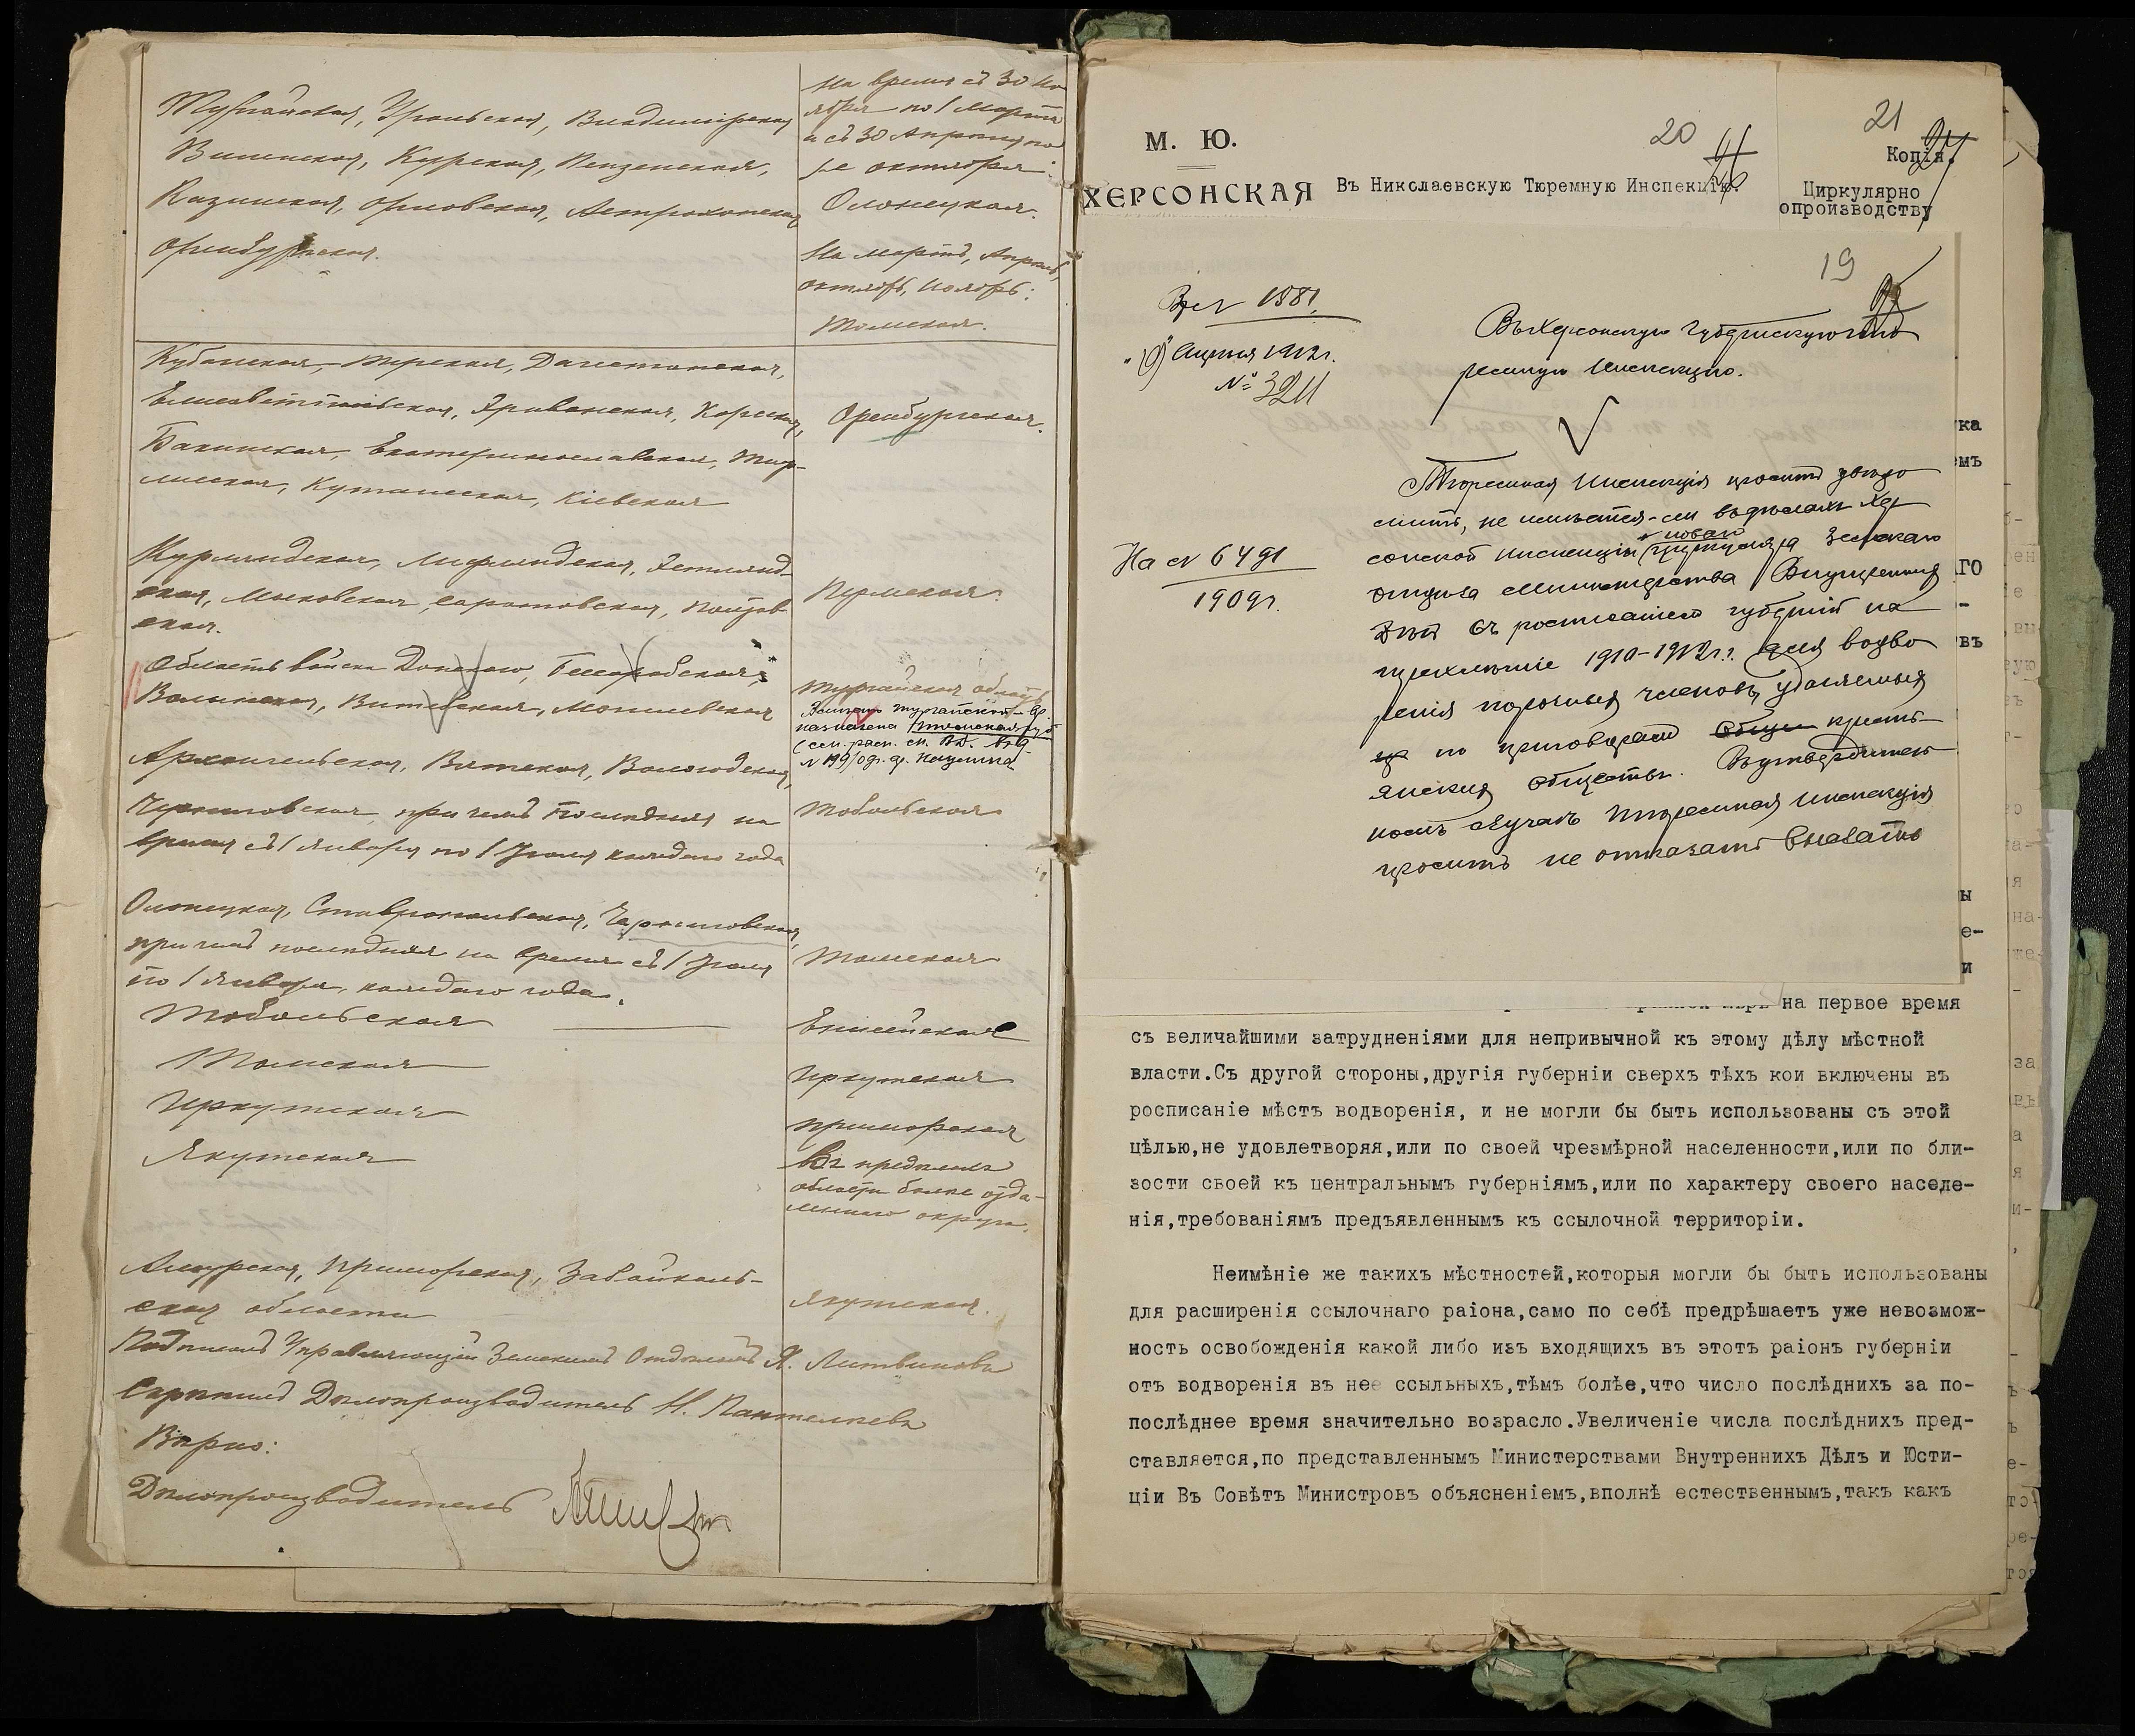 Тургайская, Уральская, Владимірская
Виленская, Курская, Пензенская,
Казанская, Орловская, Астраханская
Оренбургская.
На время съ 30 Но
ября по 1 Марта
и съ 30 Апреля по
Октября:
Олонецкая.
На Мартъ, Апрель,
Октябрь, Ноябрь:
Томская.
Кубанская, Терская, Дагестанская,
Елисаветпольская, Эриванская, Карская,
Бакинская, Екатеринославская, Тиф-
лисская, Кутаисская, Кіевская
Оренбургская.
Курляндская, Лифляндская, Эстлянд-
ская, Московская, Саратовская, Полтав
ская.
Пермская.
Область войска Донского, Бессарабская,
Волынская, Витебская, Могилевская
Тургайская область
Взамѣнъ Тургайской
назначена Томская губ
Архангельская, Вятская, Вологодская,
Черниговская, при чемъ последняя на
время съ 1 Января по 1 Іюля каждаго года
Тобольская
Олонецкая, Ставропольская, Черниговская,
при чемъ последняя на время съ 1 Іюля
по 1 Января, каждаго года.
Томская
Тобольская
Енисейская
Томская
Иркутская
Иркутская
Приморская
Якутская
Въ пределы
области более отда-
леннаго округа.
Амурская, Приморская, Забайкаль-
ская области
Якутская.
Подписалъ Управляющій Земскимъ Отделомъ Я. Литвиновъ
Скрепилъ Делопроизводитель Н. Пантелеевъ
Верно:
Делопроизводитель
М. Ю.
ХЕРСОНСКАЯ
20
Въ Николаевскую Тюремную Инспекцію.
21
Копія.
Циркулярно
опроизводству
19
1581
Апреля 1912г.
№ 3211
Въ Херсонскую Губернскую Тю
ремную Инспекцію.
На № 6491
1909г.
Тюремная Инспекція проситъ уведо
мить, не имѣется-ли въ делахъ Хер
новаго
сонской Инспекціи циркуляра Земскаго
отдела Министерства Внутреннихъ
Делъ съ росписаніемъ губерній на
трехлетіе 1910-1912г.г. для водво
ренія порочныхъ членовъ, удаляемыхъ
по приговорамъ общи кресть-
янскихъ обществъ. Въ утвердитель
номъ случаѣ Тюремная Инспекція
проситъ не отказать выслать
ка
емъ
го
въ
ы
е-
и
на первое время
съ величайшими затрудненіями для непривычной къ этому дѣлу мѣстной
власти.Съ другой стороны,другія губерніи сверхъ тѣхъ кои включены въ
росписаніе мѣстъ водворенія, и не могли бы быть использованы съ этой
цѣлью,не удовлетворяя,или по своей чрезмѣрной населенности,или по бли-
зости своей къ центральнымъ губерніямъ,или по характеру своего населе-
нія,требованіямъ предъявленнымъ къ ссылочной территоріи.
Неимѣніе же такихъ мѣстностей,которыя могли бы быть использованы
для расширенія ссылочнаго раіона,само по себѣ предрѣшаетъ уже невозмож-
ность освобожденія какой либо изъ входящихъ въ этотъ раіонъ губерніи
отъ водворенія въ нее ссыльныхъ,тѣмъ болѣе,что число послѣднихъ за по-
послѣднее время значительно возрасло.Увеличеніе числа послѣднихъ пред-
ставляется,по представленнымъ Министерствами Внутреннихъ Дѣлъ и Юсти-
ціи Въ Совѣтъ Министровъ объясненіемъ,вполнѣ естественнымъ,такъ какъ